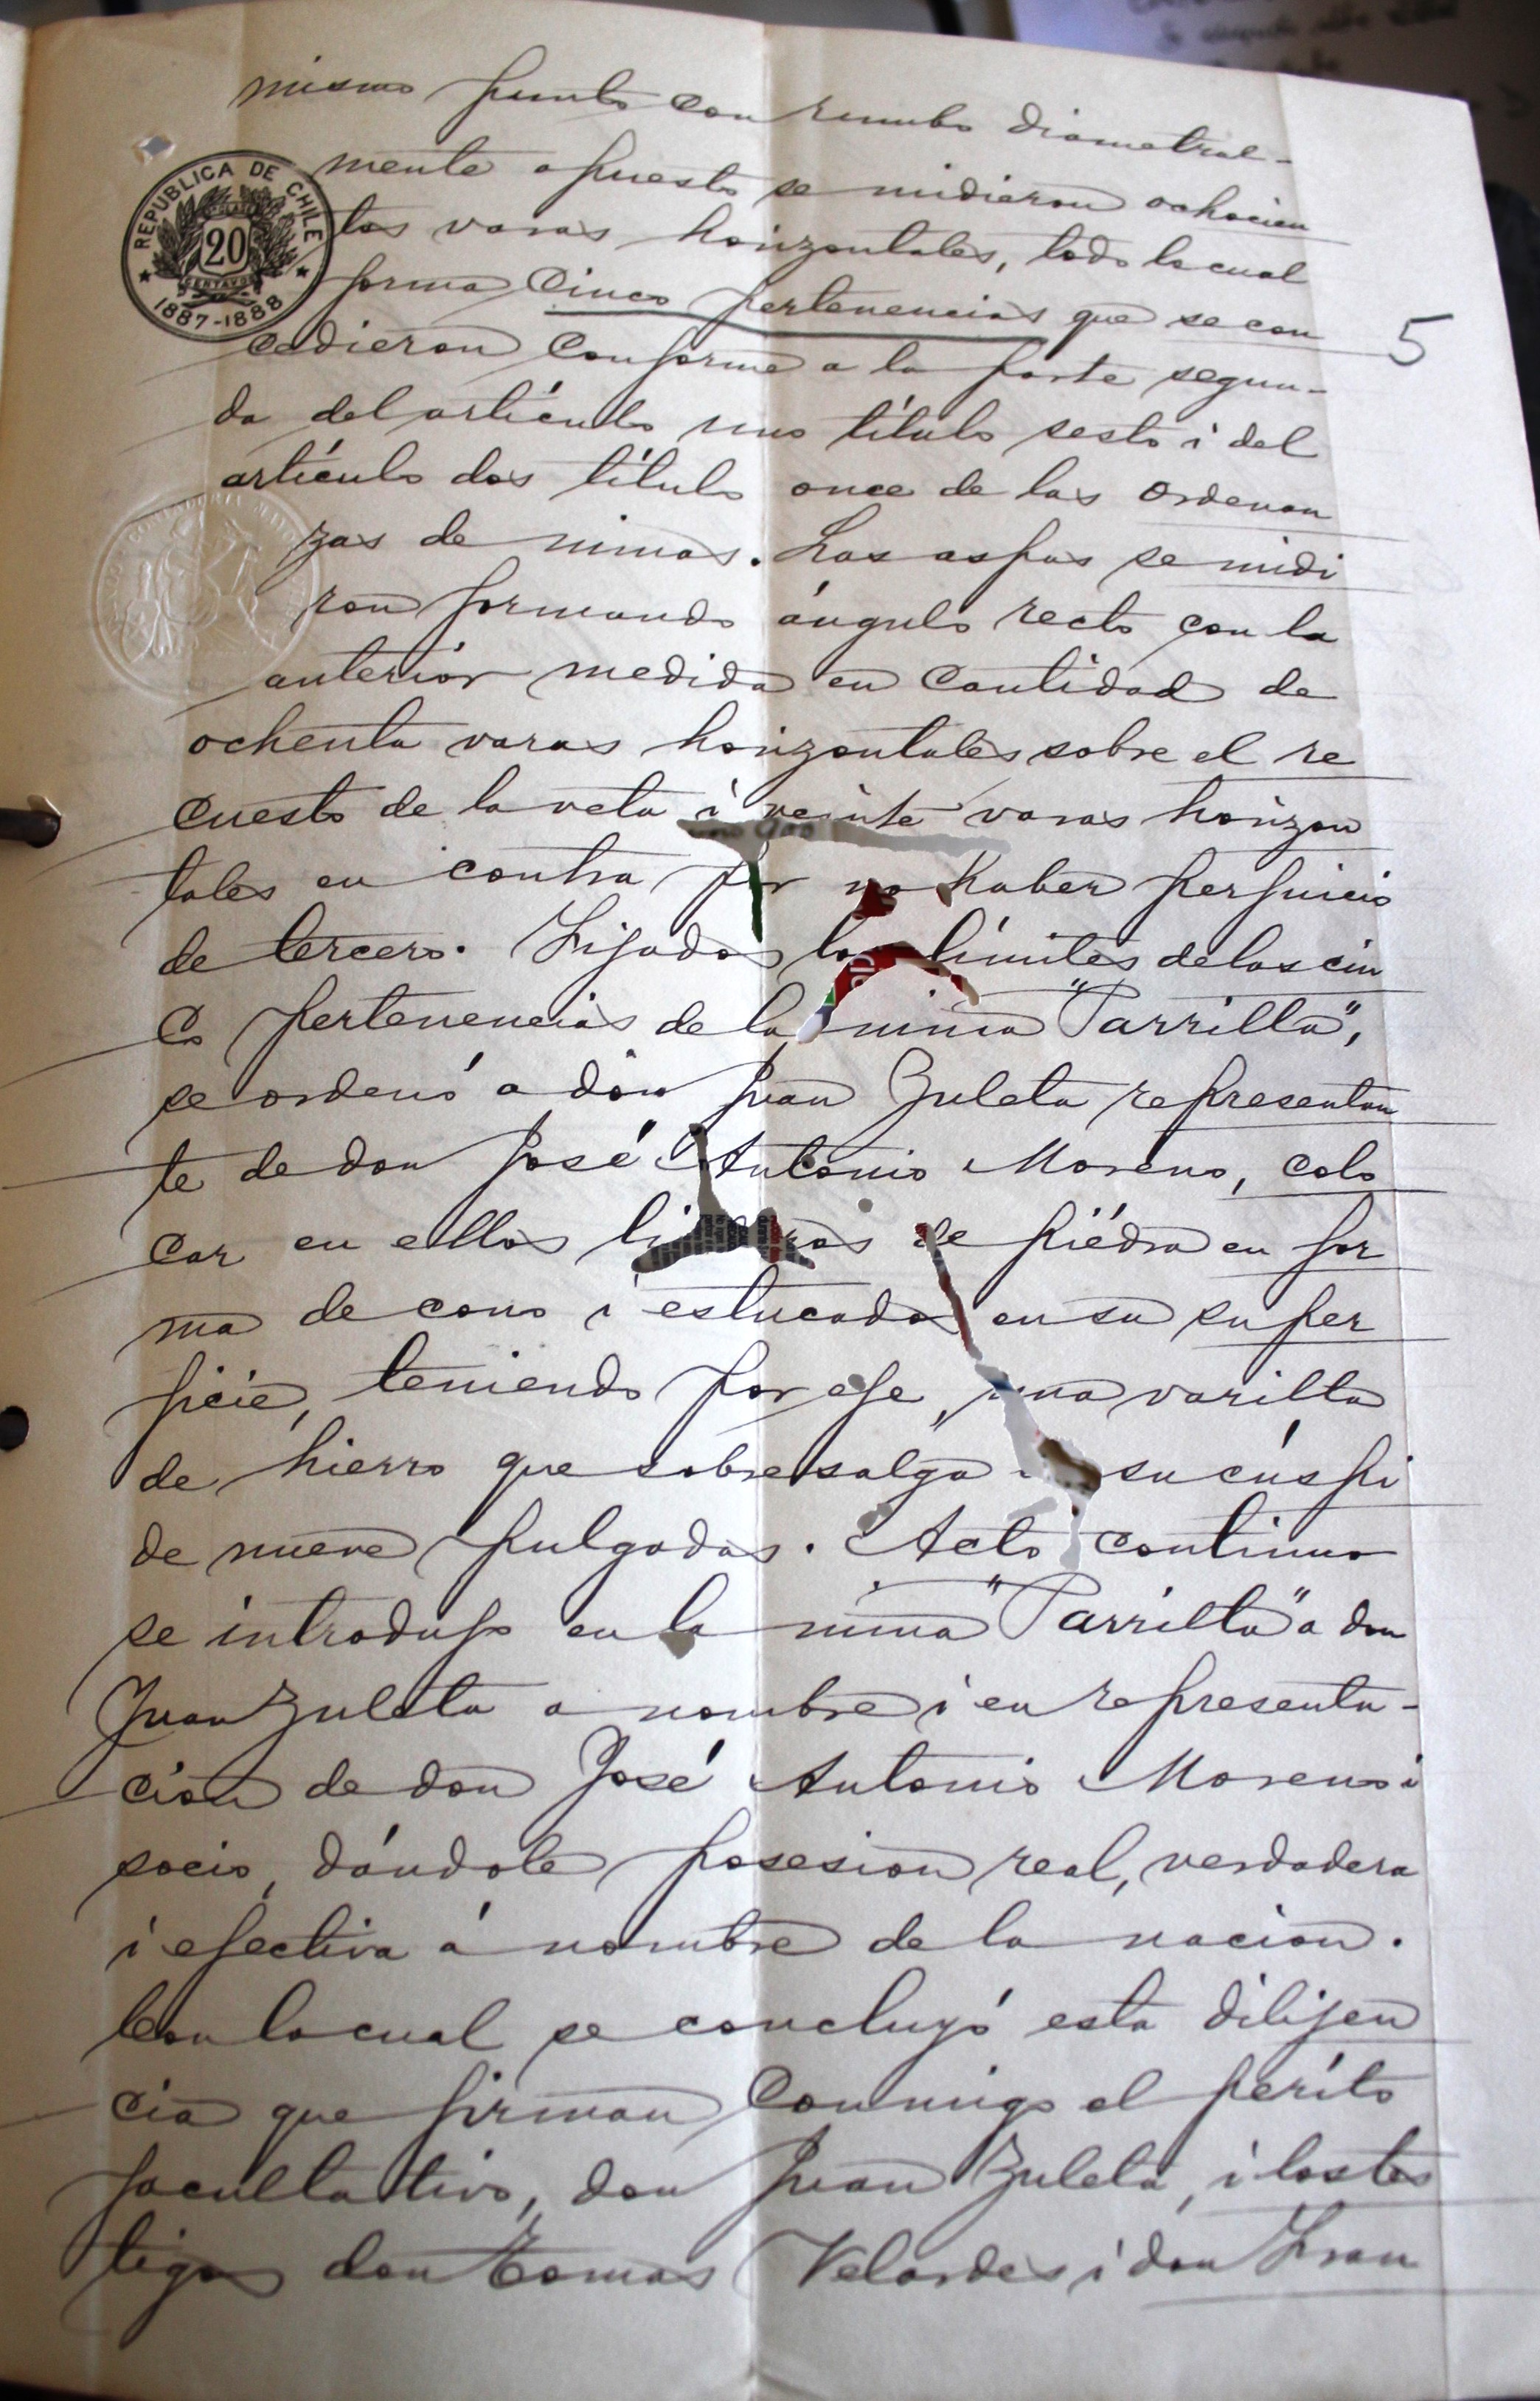 mismo punto con rumbo diametral-
mente opuesto se midieron ochocien
tas varas horizontales, todo lo cual
forma cinco pertenencias que se con
cedieron conforme a la parte segun-
da del artículo uno título sesto i del
artículo dos título once de las Ordenan
zas de minas. Las aspas se midi
ron formando ángulo recto con la
anterior medida en cantidad de
ochenta varas horizontales sobre el re
cuesto de la veta i veinte varas horizon
tales en contra por no haber perjuicio
de tercero. Fijados los límites de las cin
co pertenencias de la mina "Parrilla",
se ordenó a don Juan Zuleta representan
te de don José Antonio Moreno, colo
car en ellos de piedra en for
ma de cono i estucados en su super
ficie, teniendo por eje, una varilla
de hierro que sobresalga su cúspi
de nueve pulgadas. Acto continuo
se introdujo en la mina "Parrilla" a don
Juan Zuleta a nombre i en representa-
cion de don José Antonio Moreno i
socio, dándole posesion real, verdadera
i efectiva á nombre de la nacion.
Con lo cual se concluyó esta dilijen
cia que firman conmigo el perito
facultativo, don Juan Zuleta, i los tes
tigos don Tomas Velardes i don Fran
REPUBLICA DE CHILE
20
CENTAVOS
1887-1888
5